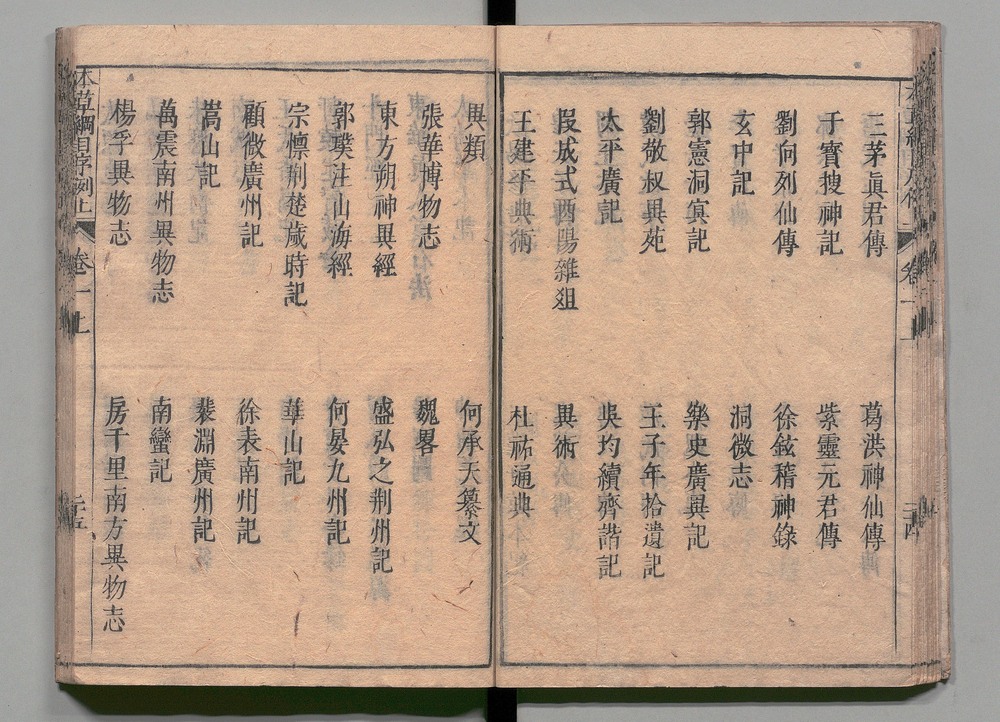 三茅眞君傳　葛洪神仙傳
于寳搜神記　紫靈元君傳
劉向列仙傳　徐鉉稽神錄
玄中記　洞微志
郭憲洞冥記　樂史廣異記
劉敬叔異苑　王子年拾遺記
太平廣記　吳均續齊諧記
段成式酉陽雜俎　異術
王建平典術　杜祐通典
異類　何承天纂文
張華博物志　魏畧
東方朔神異經　盛弘之荆州記
郭璞注山海經　何晏九州記
宗懍荆楚歲時記　華山記
顧微廣州記　徐表南州記
嵩山記　裴淵廣州記
萬震南州異物志　南蠻記
楊孚異物志　房千里南方異物志
本草綱目序列上　卷一上　二十五